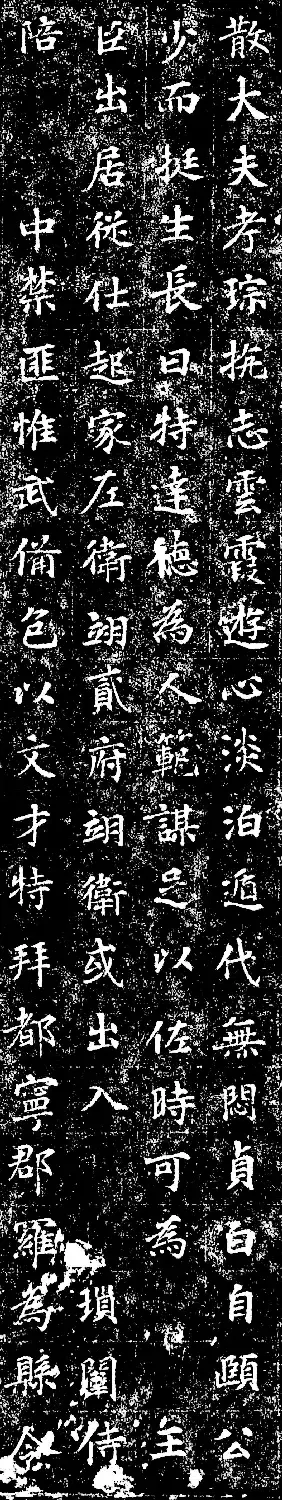 散大夫孝琮抗志雲霞遊心淡泊遁代無悶貞白自頤公
少而挺生長曰特達德為人範謀足以佐時可為主
臣出居從仕起家左衛翊貳府翊衛或出入瑣闈侍
陪中禁匪惟武備包以文才特拜都寧郡羅為縣令